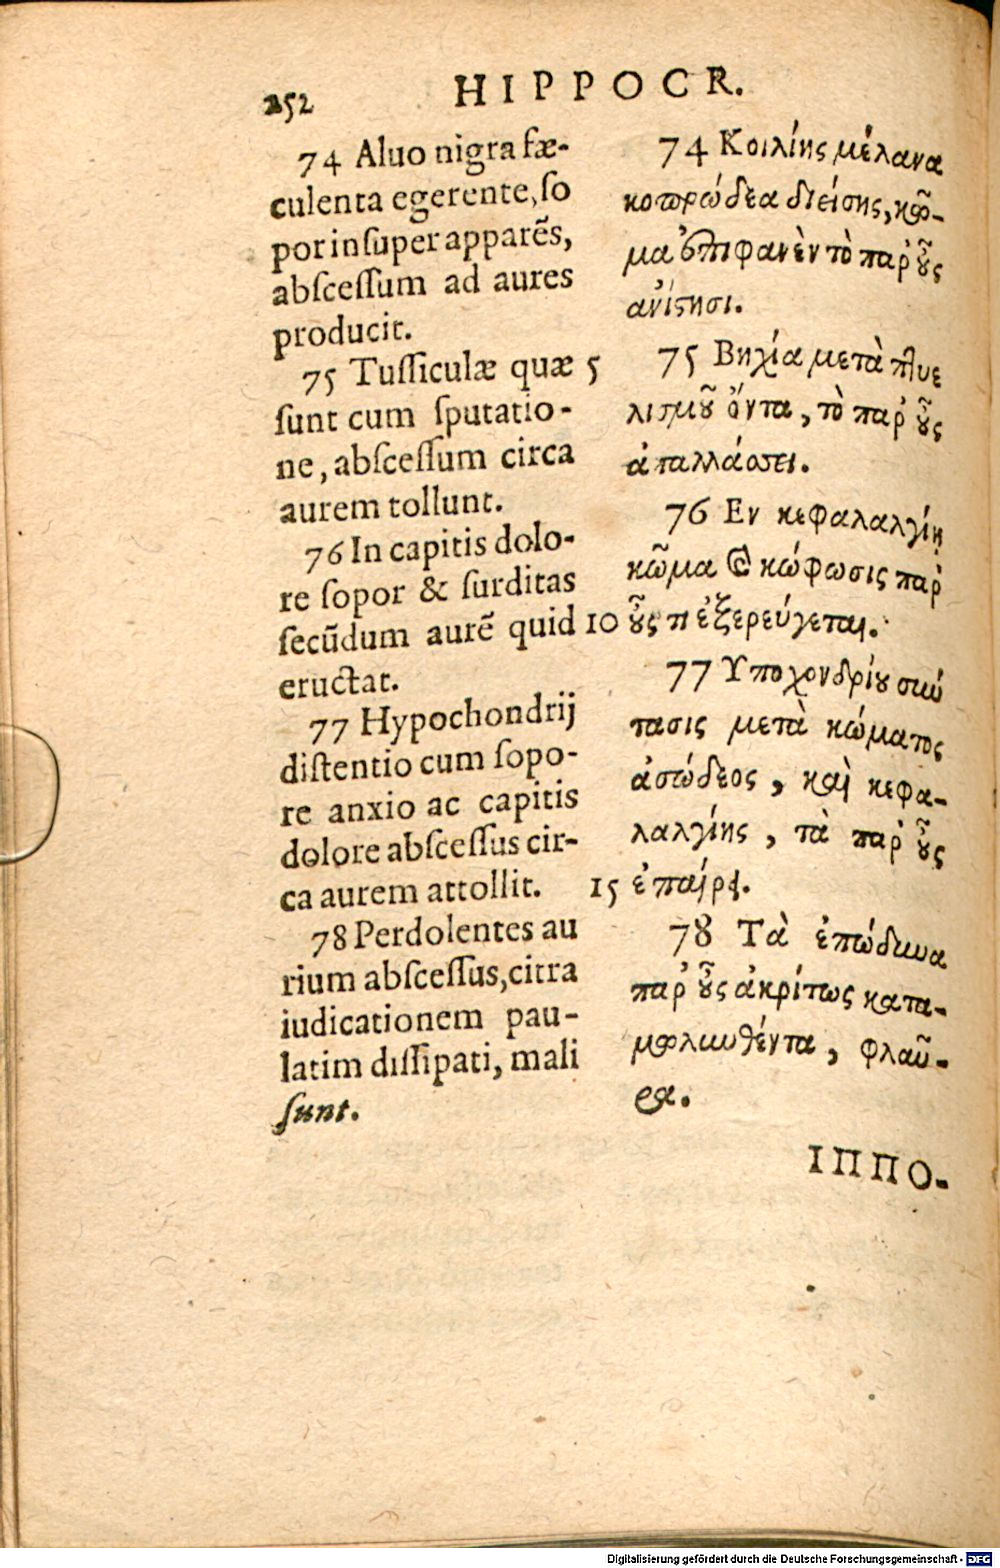 252 HIPPOCR.
74 Aluo nigra fæ-
culenta egerente, ſo
por inſuper apparẽs,
abſceſſum ad aures
producit.
75 Tuſſiculæ quæ
ſunt cum ſputatio-
ne, abſceſſum circa
aurem tollunt.
76 In capitis dolo-
re ſopor & ſurditas
ſecũdum aurẽ quid
eructat.
77 Hypochondrij
diſtentio cum ſopo-
re anxio ac capitis
dolore abſceſſus cir-
ca aurem attollit.
78 Perdolentes au
rium abſceſſus, citra
iudicationem pau-
latim diſſipati, mali
ſunt.
5
10
15
74 Κοιλίης μέλανα
κοπρώδεα διείσης, κῶ-
μα ἐπιφανὲν τὸ παρ' οὖς
ἀνίστησι.
75 Βηχία μετὰ πτυε
λισμοῦ ὄντα, τὸ παρ' οὖς
ἀπαλλάσσει.
76 Εν κεφαλαλγίῃ
κῶμα καὶ κώφωσις παρ'
οὖς τι ἐξερεύγεται.
77 Υποχονδρίου σύν
τασις μετὰ κώματος
ἀσώδεος, καὶ κεφα-
λαλγίης, τὰ παρ' οὖς
ἐπαίρει.
78 Τὰ ἐπώδυνα
παρ' οὖς ἀκρίτως κατα-
μωλυνθέντα, φλαῦ-
ρα.
ΙΠΠΟ-
Digitalisierung gefördert durch die Deutsche Forschungsgemeinschaft - DFG